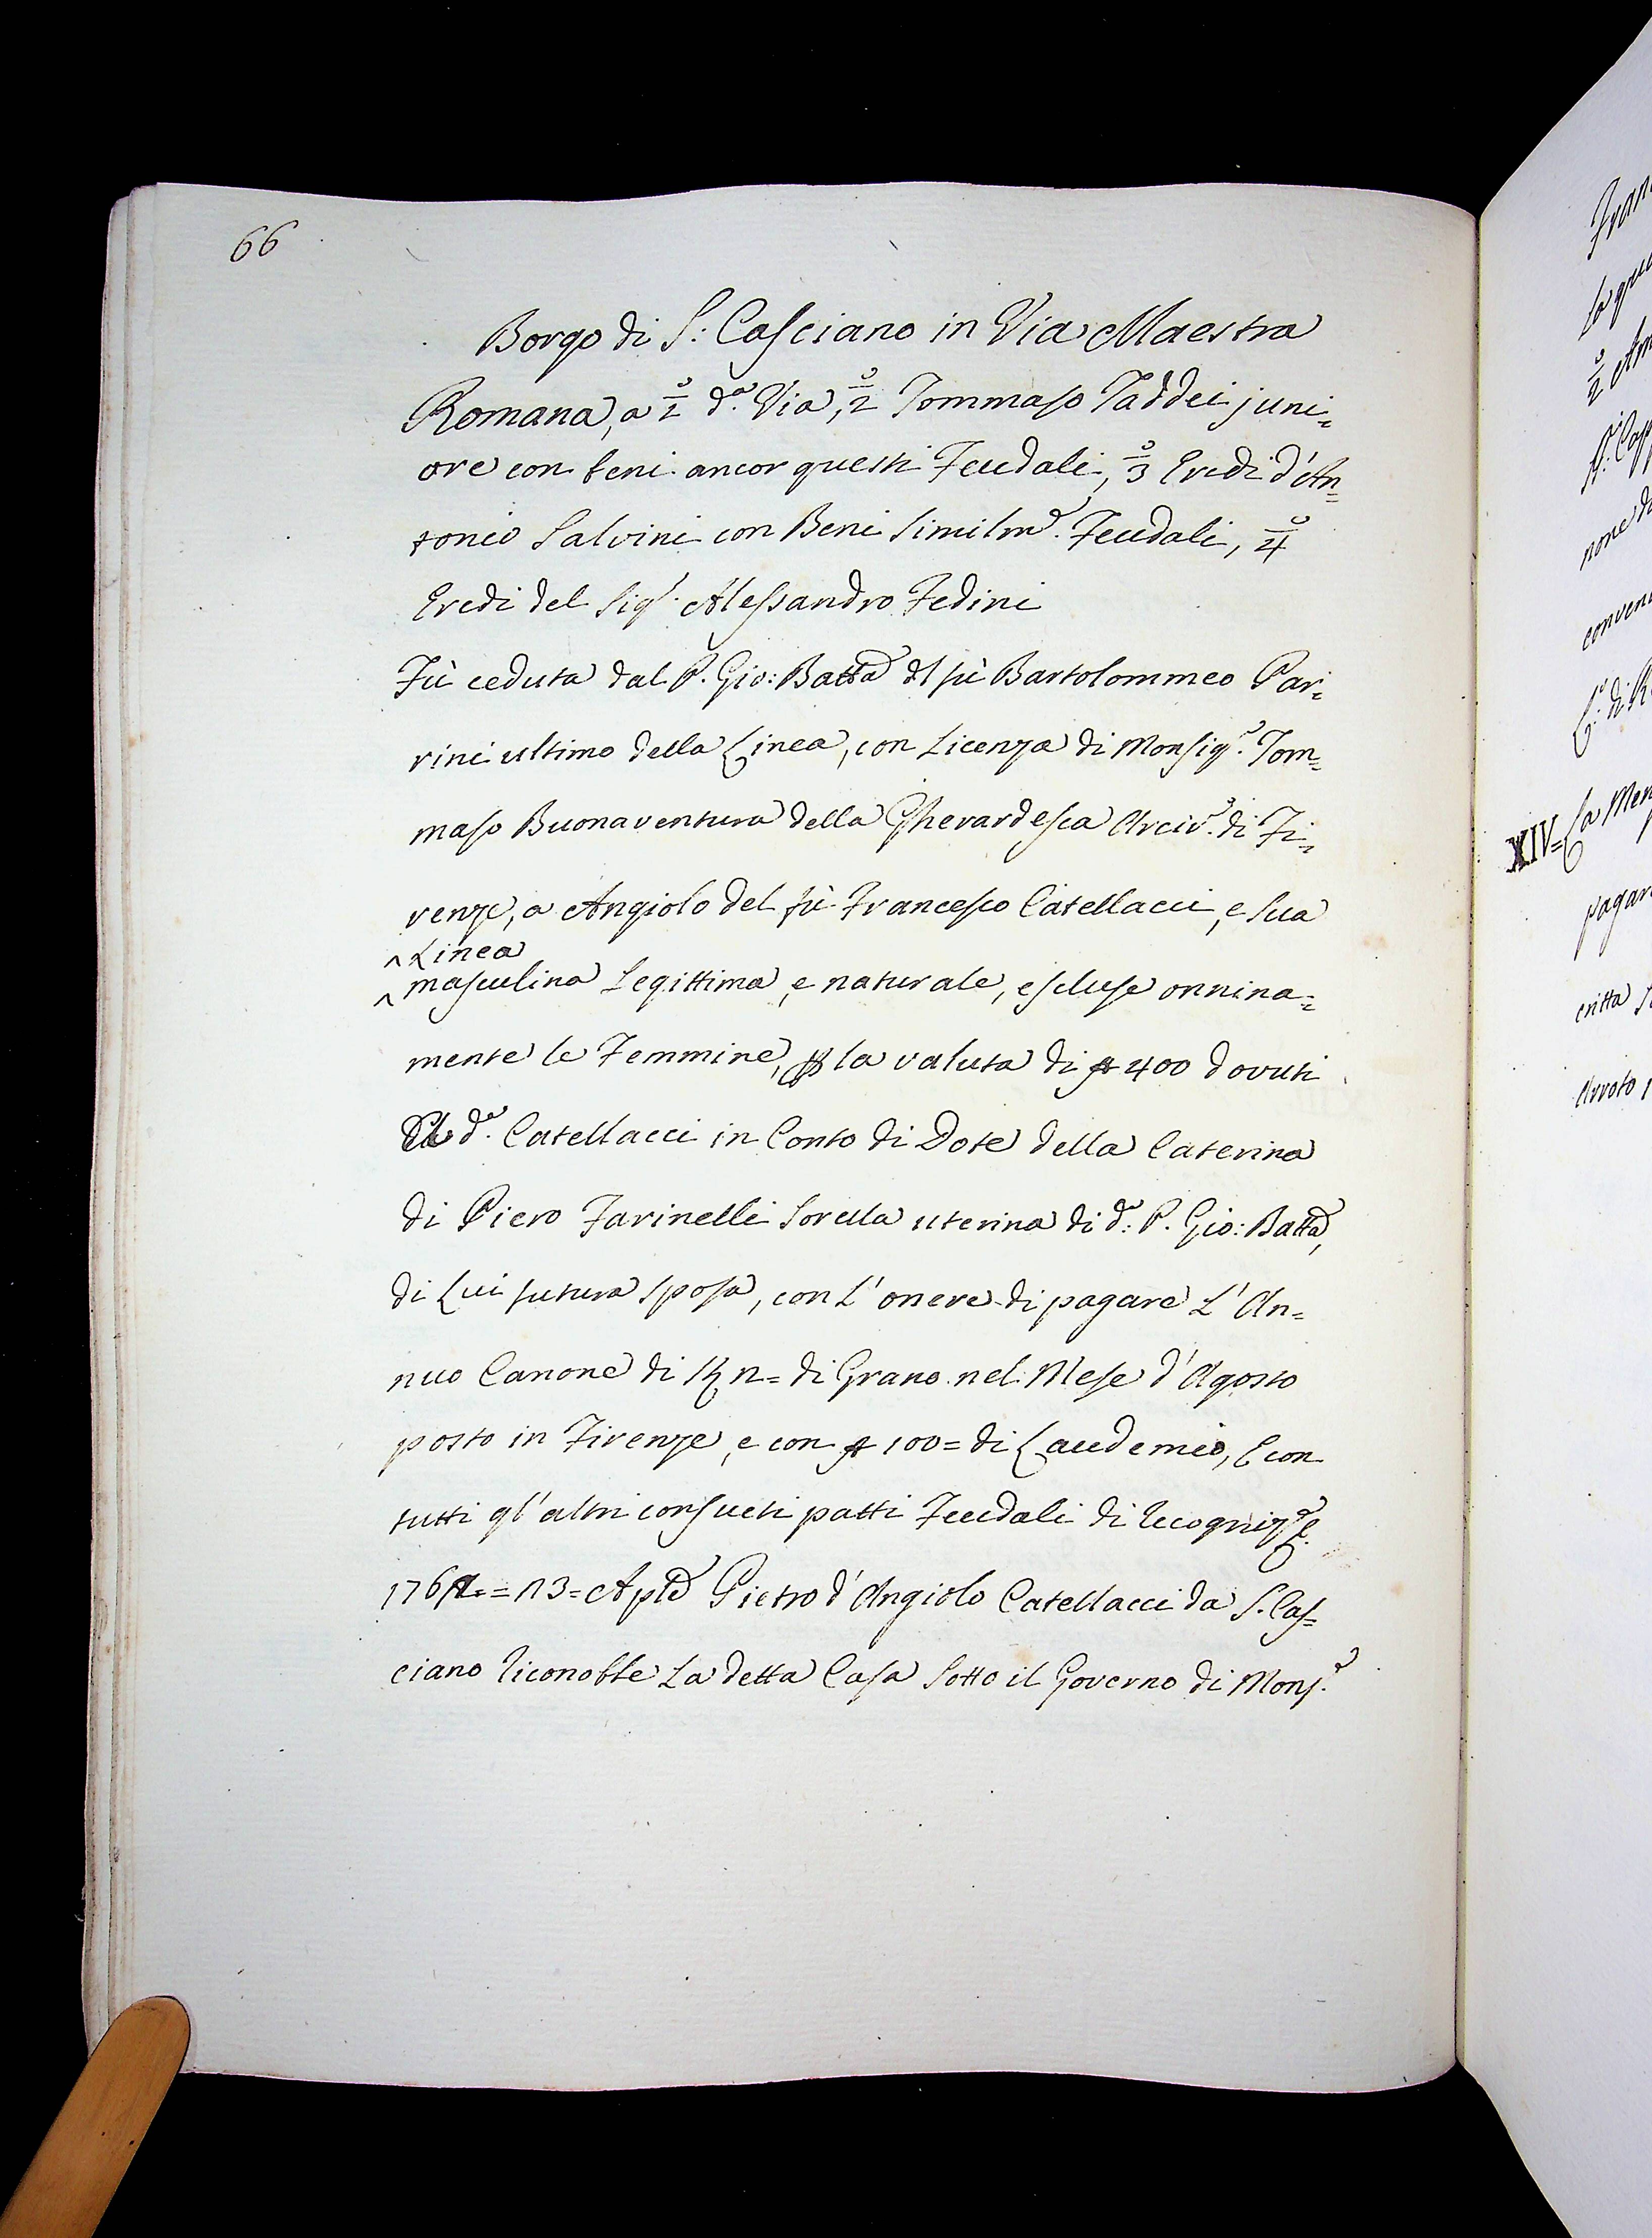 66
Borgo di S: Casciano in Via Maestra
Romana, a 1/2 d.ª Via, 2 Tommaso Taddei juni=
ore con beni ancor questi Feudali, 3 Eredi d'An=
tonio Salvini con Beni similm.e Feudali, 4
Eredi del Sig.r Alessandro Fedini
Fù ceduta dal P. Gio: Batta dl fù Bartolommeo Par=
rini ultimo della Linea, con Licenza di Monsig.e Tom=
maso Buonaventura della Gherardesca Arciv.o di Fi=
renze, a Angiolo del fù Francesco Catellacci, e sua
^ Linea
^ masculina Legittima, e naturale, escluse onnina=
mente le Femmine, p la valuta di 400 dovuti
d.o Catellacci in Conto di Dote della Caterina
di Piero Farinelli Sorella uterina di d.o: P. Gio: Batta,
di Lui futura sposa, con L' onere di pagare L' An=
nuo Canone di di Grano nel Mese d' Agosto
posto in Firenze, e con 100= di Laudemio, E con
tutti gl' altri consueti patti Feudali di recogniz.e
= Aple Pietro d' Angiolo Catellacci da S. Cas=
ciano riconobbe La detta Casa sotto il Governo di Mons.e
XIV= La Men